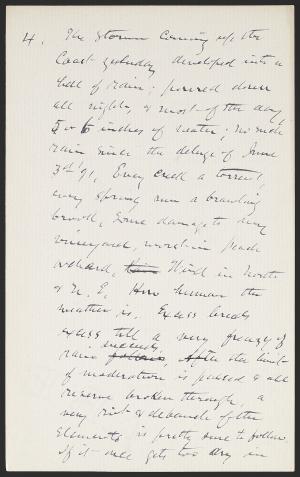 4. The storm coming up the
Coast yesterday developed into a
hell of rain; poured down
all night, & most of the day,
5 or 6 inches of water; no such
rain since the deluge of June
3rd '91, Every creek a torrent,
every spring run a brawling
brook, Some damage to my
vineyard, worst in peach
orchard, Wind in North
& N. E, How human the
weather is. Excess breeds
excess till a very frenzy of
rain succeeds, After the limit
of moderation is passed & all
reserve broken through, a
very riot & debauch of the
Elements is pretty sure to follow.
If it once gets too dry in